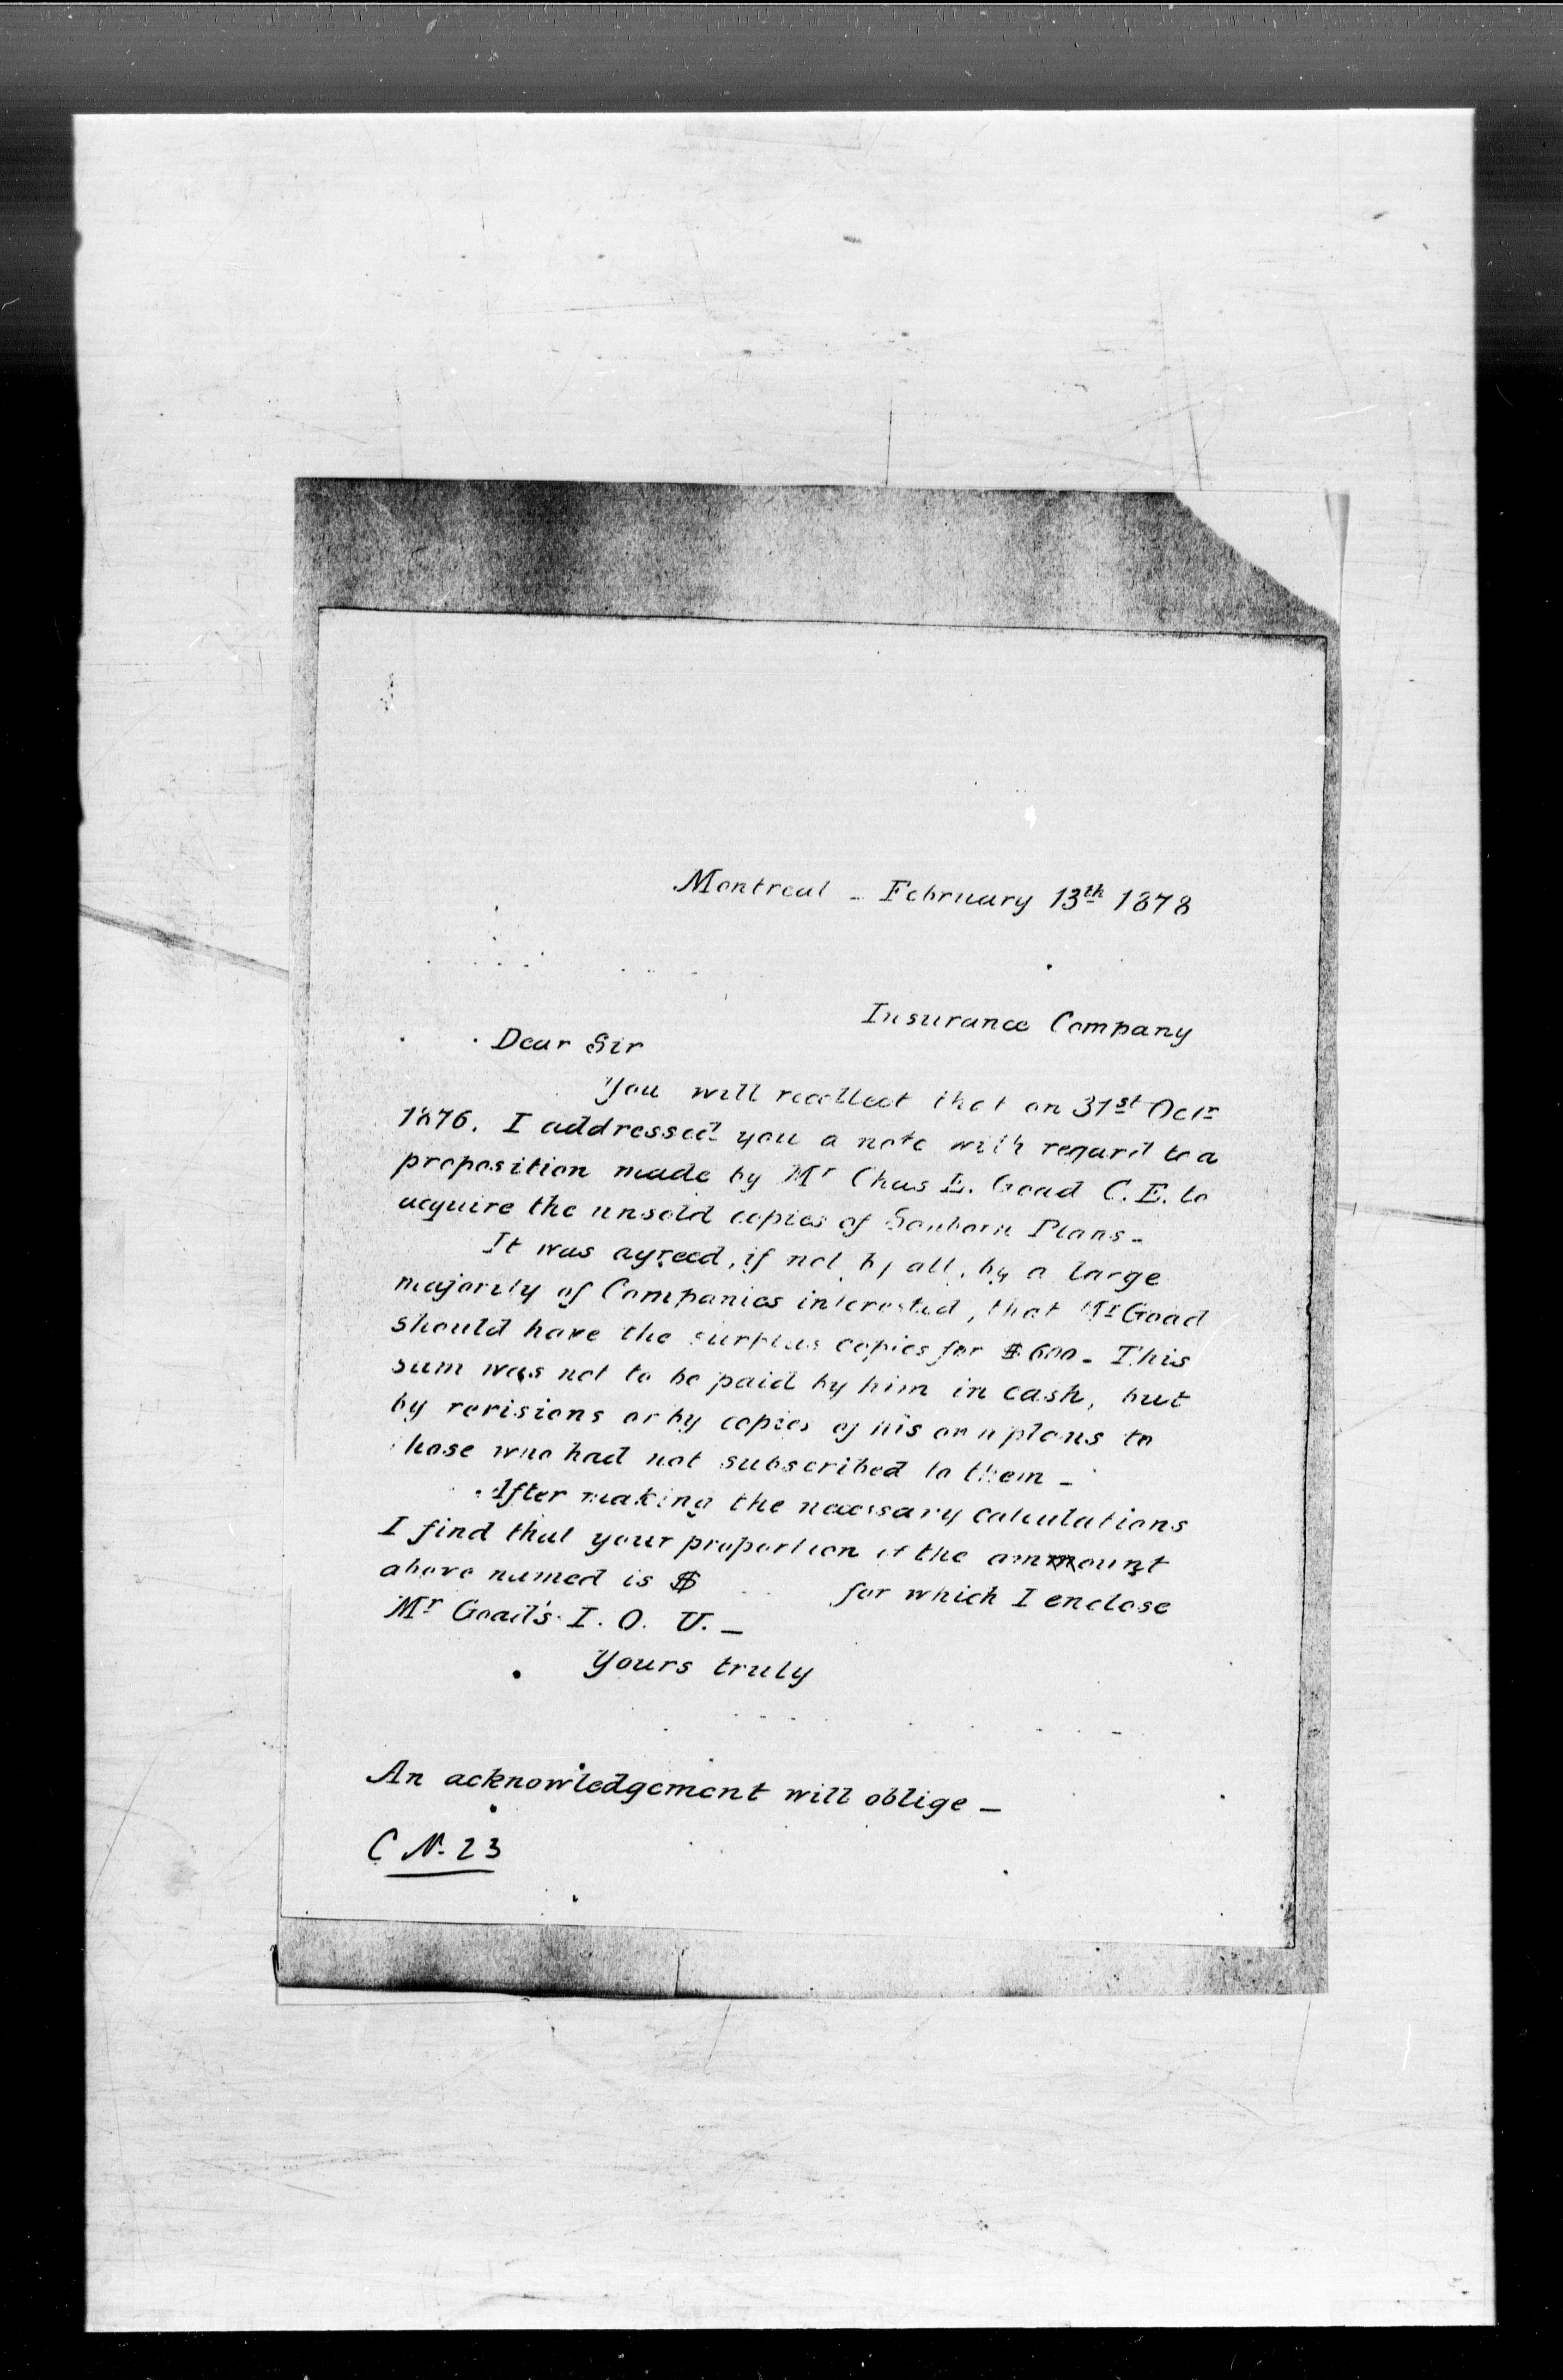 Montreal - February 13th 1878
Insurance Company
Dear Sir
You will recollect that on 31st Octr
1876. I addressed you a note with regard to a
proposition made by Mr Chas E. Goad C.E. to
acquire the unsold copies of Sanborn Plans -
It was agreed, if not by all, by a large
majority of Companies interested, that Mr Goad
should have the surplus copies for $600 - This
sum was not to be paid by him in cash, but
by revisions or by copies of his own plans to
those who had not subscribed to them -
After making the necessary calculations
I find that your proportion of the ammount
above named is $ for which I enclose
Mr Goad's I. O. U. -
Yours truly
An acknowledgement will oblige -
C N. 23